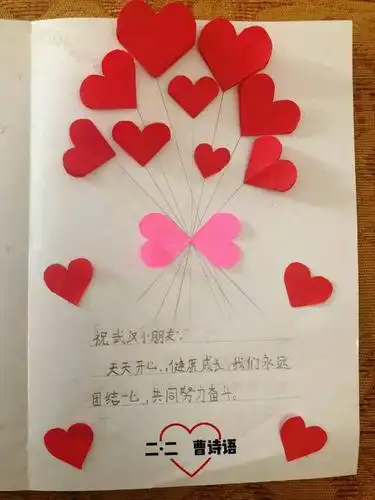 祝武汉小朋友:
天天开心,健康成长,我们永远
团结一心,共同努力奋斗。
二·二 曹诗语